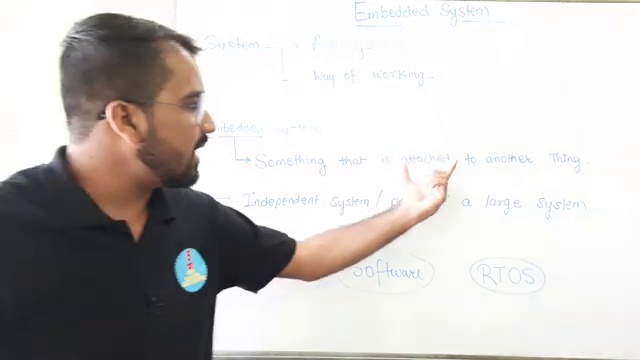 Embedded System
System
way of working
Something that is attached to another Thing.
Independent system / a large system
Software RTOS